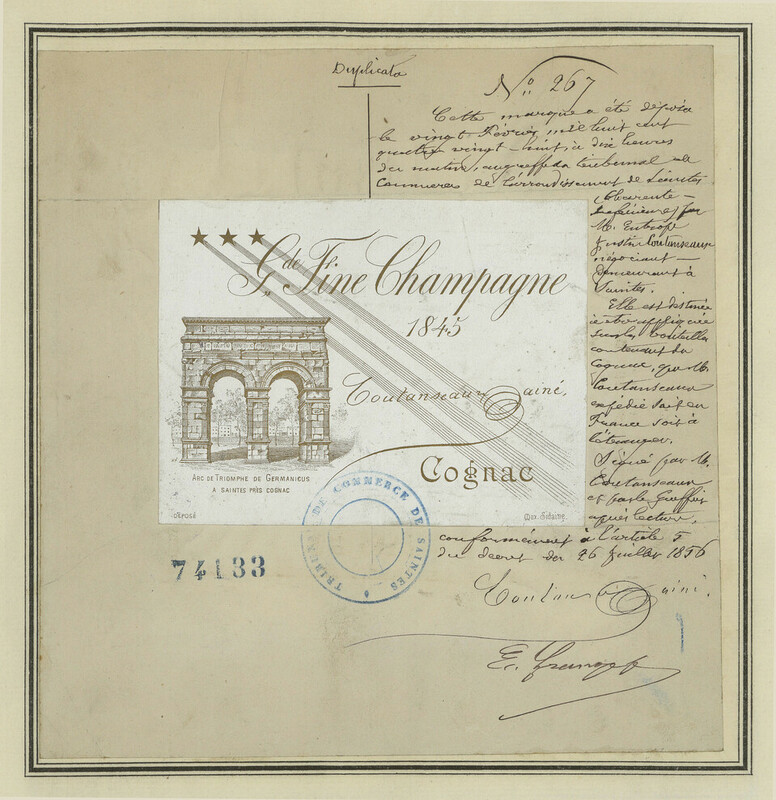 Duplicata
No 267
Cette marque a été déposée
le vingt Février mil huit cent
quatre vingt-huit, à dix heures
du matin, au greffe du tribunal de
Commerce de l'arrondissement de Saintes
(Charente-
Inférieure) par
M. Eutrope
Justin Coutanseaux
négociant
demeurant à
Saintes.
Elle est destinée
à être appliquée
sur les bouteilles
contenant du
Cognac, que M.
Coutanseaux
expédie soit en
France soit à
l'étranger.
Signé par M.
Coutanseaux
et par le Greffier
après lecture,
conformément à l'article 5
du décret du 26 Juillet 1856
Gde Fine Champagne
1845
Coutanseaux ainé,
Cognac
ARC DE TRIOMPHE DE GERMANICUS
A SAINTES PRÈS COGNAC
DÉPOSÉ
TRIBUNAL DE COMMERCE DE SAINTES
74133
Coutanseaux ainé.